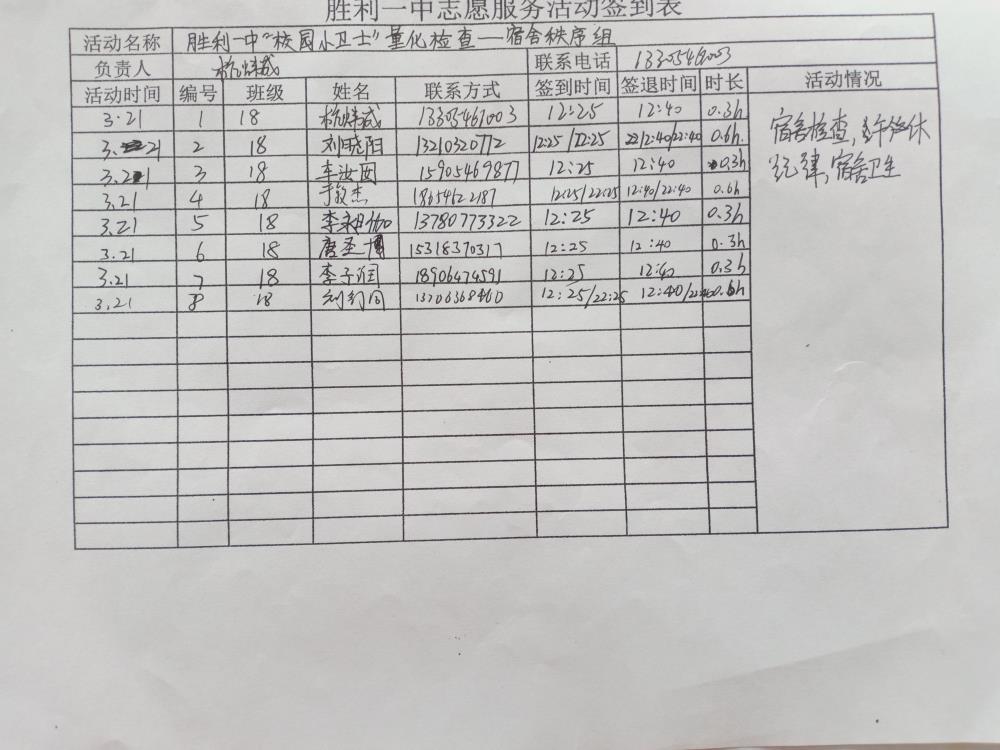 胜利一中志愿服务活动签到表
活动名称 胜利一中"校园小卫士"量化检查—宿舍秩序组
负责人 联系电话
活动时间 编号 班级 姓名 联系方式 签到时间 签退时间 时长 活动情况
3.21 1 18 13305461003 12:25 12:40 0.3h
3.21 2 18 刘晓阳 13210320772 12:25/22:25 12:40/22:40 0.6h.
3.21 3 18 15905469877 12:25 12:40 0.3h
3.21 4 18 于毅杰 18654622187 12:25/22:25 12:40/22:40 0.6h
3.21 5 18 13780773322 12:25 12:40 0.3h
3.21 6 18 唐圣博 15318370317 12:25 12:40 0.3h
3.21 7 18 李子润 18906474591 12:25 12:40 0.3h
3.21 8 18 13706368460 12:25/22:25 12:40/22:40 0.6h
宿舍检查,午休
纪律,宿舍卫生